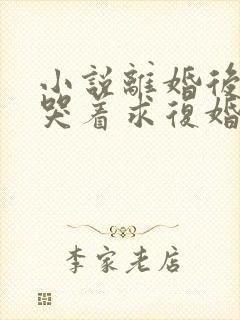 小説離婚後
哭着求復婚
李家老店